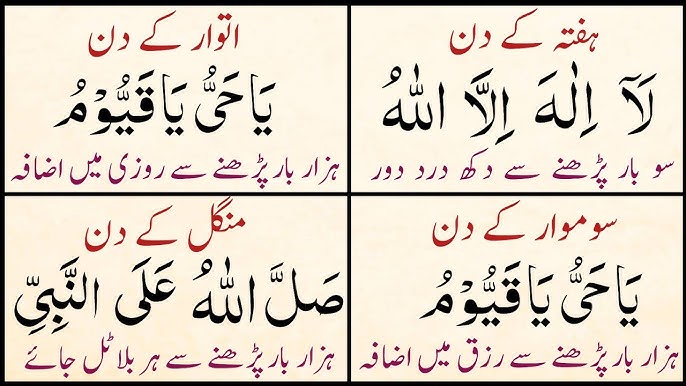 ہفتہ کے دن
لَآ اِلٰهَ اِلَّا اللهُ
سو بار پڑھنے سے دکھ درد دور
اتوار کے دن
یَاحَیُّ یَاقَیُّوْمُ
ہزار بار پڑھنے سے روزی میں اضافہ
سوموار کے دن
یَاحَیُّ یَاقَیُّوْمُ
ہزار بار پڑھنے سے رزق میں اضافہ
منگل کے دن
صَلَّ اللهُ عَلَی النَّبِیِّ
ہزار بار پڑھنے سے ہر بلا ٹل جائے